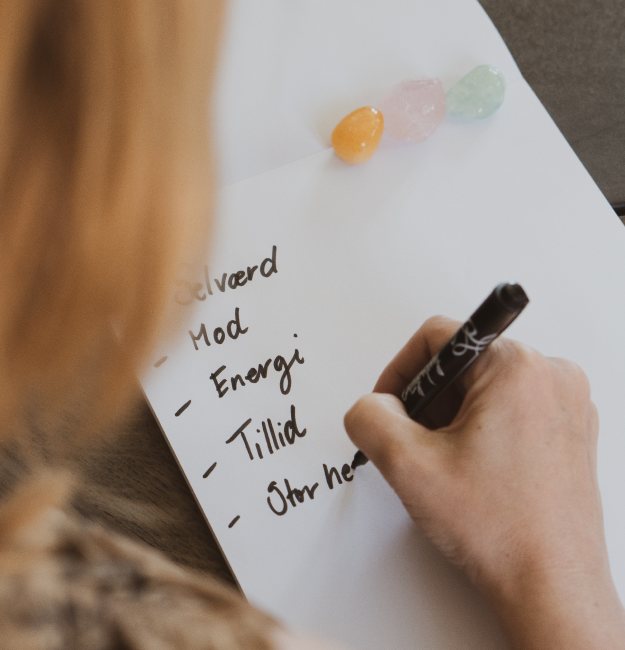 Selværd
- Mod
- Energi
- Tillid
- Stor he